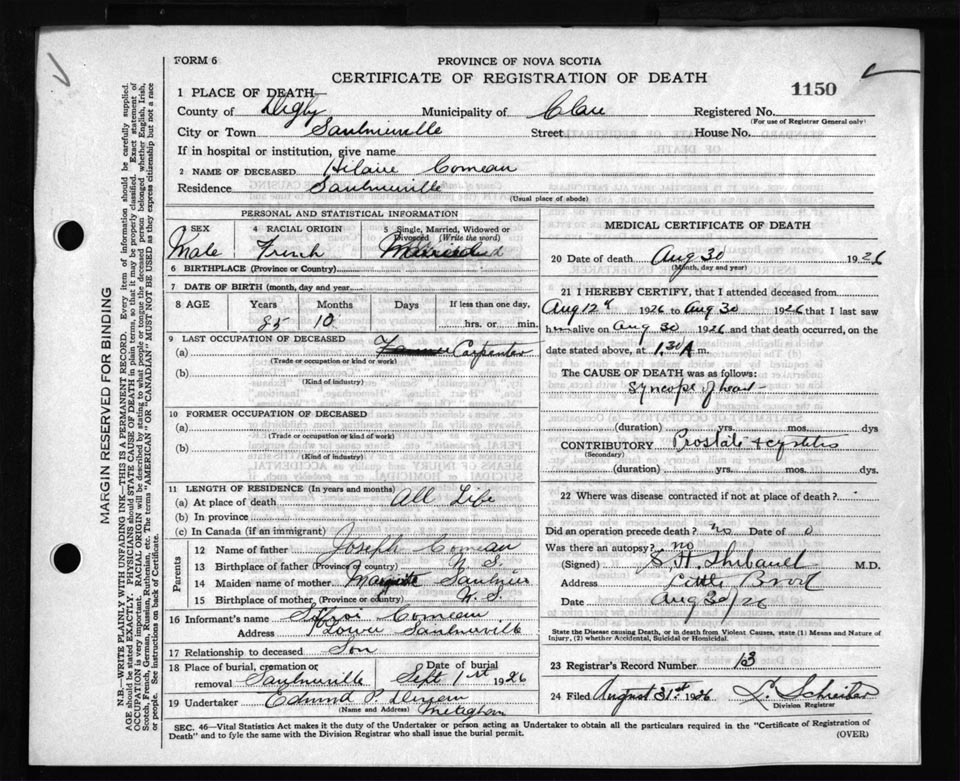 FORM 6
PROVINCE OF NOVA SCOTIA
CERTIFICATE OF REGISTRATION OF DEATH
1150
1 PLACE OF DEATH—
County of Digby Municipality of Clare Registered No.
(For use of Registrar General only)
City or Town Saulnierville Street House No.
If in hospital or institution, give name
2 NAME OF DECEASED Hilaire Comeau
Residence Saulnierville
(Usual place of abode)
PERSONAL AND STATISTICAL INFORMATION
3 SEX 4 RACIAL ORIGIN 5 Single, Married, Widowed or Divorced (Write the word)
Male French
6 BIRTHPLACE (Province or Country)
7 DATE OF BIRTH (month, day and year)
8 AGE Years Months Days If less than one day,
85 10 hrs. or min.
9 LAST OCCUPATION OF DECEASED
(a) Farmer Carpenter
(Trade or occupation or kind or work)
(b)
(Kind of industry)
10 FORMER OCCUPATION OF DECEASED
(a)
(Trade or occupation or kind of work)
(b)
(Kind of industry)
11 LENGTH OF RESIDENCE (In years and months)
(a) At place of death All Life
(b) In province
(c) In Canada (if an immigrant)
Parents
12 Name of father Joseph Comeau
13 Birthplace of father (Province or country) N. S.
14 Maiden name of mother Marguerite Saulnier
15 Birthplace of mother (Province or country) N. S.
16 Informant's name Comeau
Address Lower Saulnierville
17 Relationship to deceased Son
18 Place of burial, cremation or removal Saulnierville Date of burial Sept 1st 1926
19 Undertaker Edmund P. Meteghan
(Name and Address)
MEDICAL CERTIFICATE OF DEATH
20 Date of death Aug 30 1926
(Month, day and year)
21 I HEREBY CERTIFY, that I attended deceased from
Aug 12th 1926 to Aug 30 1926 that I last saw
him alive on Aug 30 1926 and that death occurred, on the
date stated above, at 1.30 A m.
The CAUSE OF DEATH was as follows:
Syncope of heart
(duration) yrs. mos. dys
CONTRIBUTORY Prostate & cystitis
(Secondary)
(duration) yrs. mos. dys.
22 Where was disease contracted if not at place of death?
Did an operation precede death? no Date of 0
Was there an autopsy? no
(Signed) E H Thibault M.D.
Address Little Brook
Date Aug 30/26
State the Disease causing Death, or in death from Violent Causes, state (1) Means and Nature of
Injury, (2) whether Accidental, Suicidal or Homicidal.
23 Registrar's Record Number 63
24 Filed August 31st 1926 L. Schreiber
Division Registrar
SEC. 46—Vital Statistics Act makes it the duty of the Undertaker or person acting as Undertaker to obtain all the particulars required in the "Certificate of Registration of
Death" and to fyle the same with the Division Registrar who shall issue the burial permit.
(OVER)
MARGIN RESERVED FOR BINDING
N.B.—WRITE PLAINLY WITH UNFADING INK—THIS IS A PERMANENT RECORD. Every item of information should be carefully supplied.
AGE should be stated EXACTLY. PHYSICIANS should STATE CAUSE OF DEATH in plain terms, so that it may be properly classified. Exact statement of
OCCUPATION is very important. RACIAL ORIGIN will be described by stating to what people or tongue the deceased person belonged whether English, Irish,
Scotch, French, German, Russian, Ruthenian, etc. The terms "AMERICAN" OR "CANADIAN" MUST NOT BE USED as they express citizenship but not a race
or people. See instructions on back of Certificate.